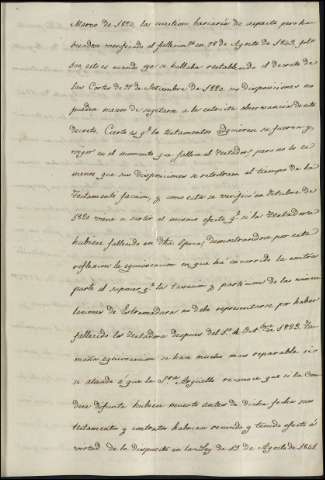 Marzo de 1820, la cuestion variaria de aspecto pero ha-
biendose verificado el fallecim.to en 28 de Agosto de 1843, por
mor este es cuando ya se hallaba restablecido el decreto de
las Cortes de 27 de Setiembre de 1820 su disposiciones no
pueden menos de sugetarse a la estricta observancia de este
decreto. Cierto es q.e los testamentos adquieren su fuerza y
vigor en el momento que fallece el testador, pero no lo es
menos que sus disposiciones se retrotraen al tiempo de la
testamenti faccion, y como esta se verificó en Octubre de
1820 viene a surtir el mismo efecto q.e si la testadora
hubiese fallecido en dha epoca, demostrandose por esta
reflexion la equivocacion en que ha incurrido la contraria
parte al suponer q.e la tasacion y particion de las vincu-
laciones de Estremadura no debe representarse por haber
fallecido la testadora despues del 1.º de Oct.bre de 1823. La
misma equivocacion se hace mucho mas reparable si
se atiende á que la S.ra Argüelles reconoce que si la Con-
desa difunta hubiese muerto antes de dicha fecha sus
testamentos y contratos habrian revivido y tenido efecto á
virtud de lo dispuesto en la Ley de 19 de Agosto de 1841